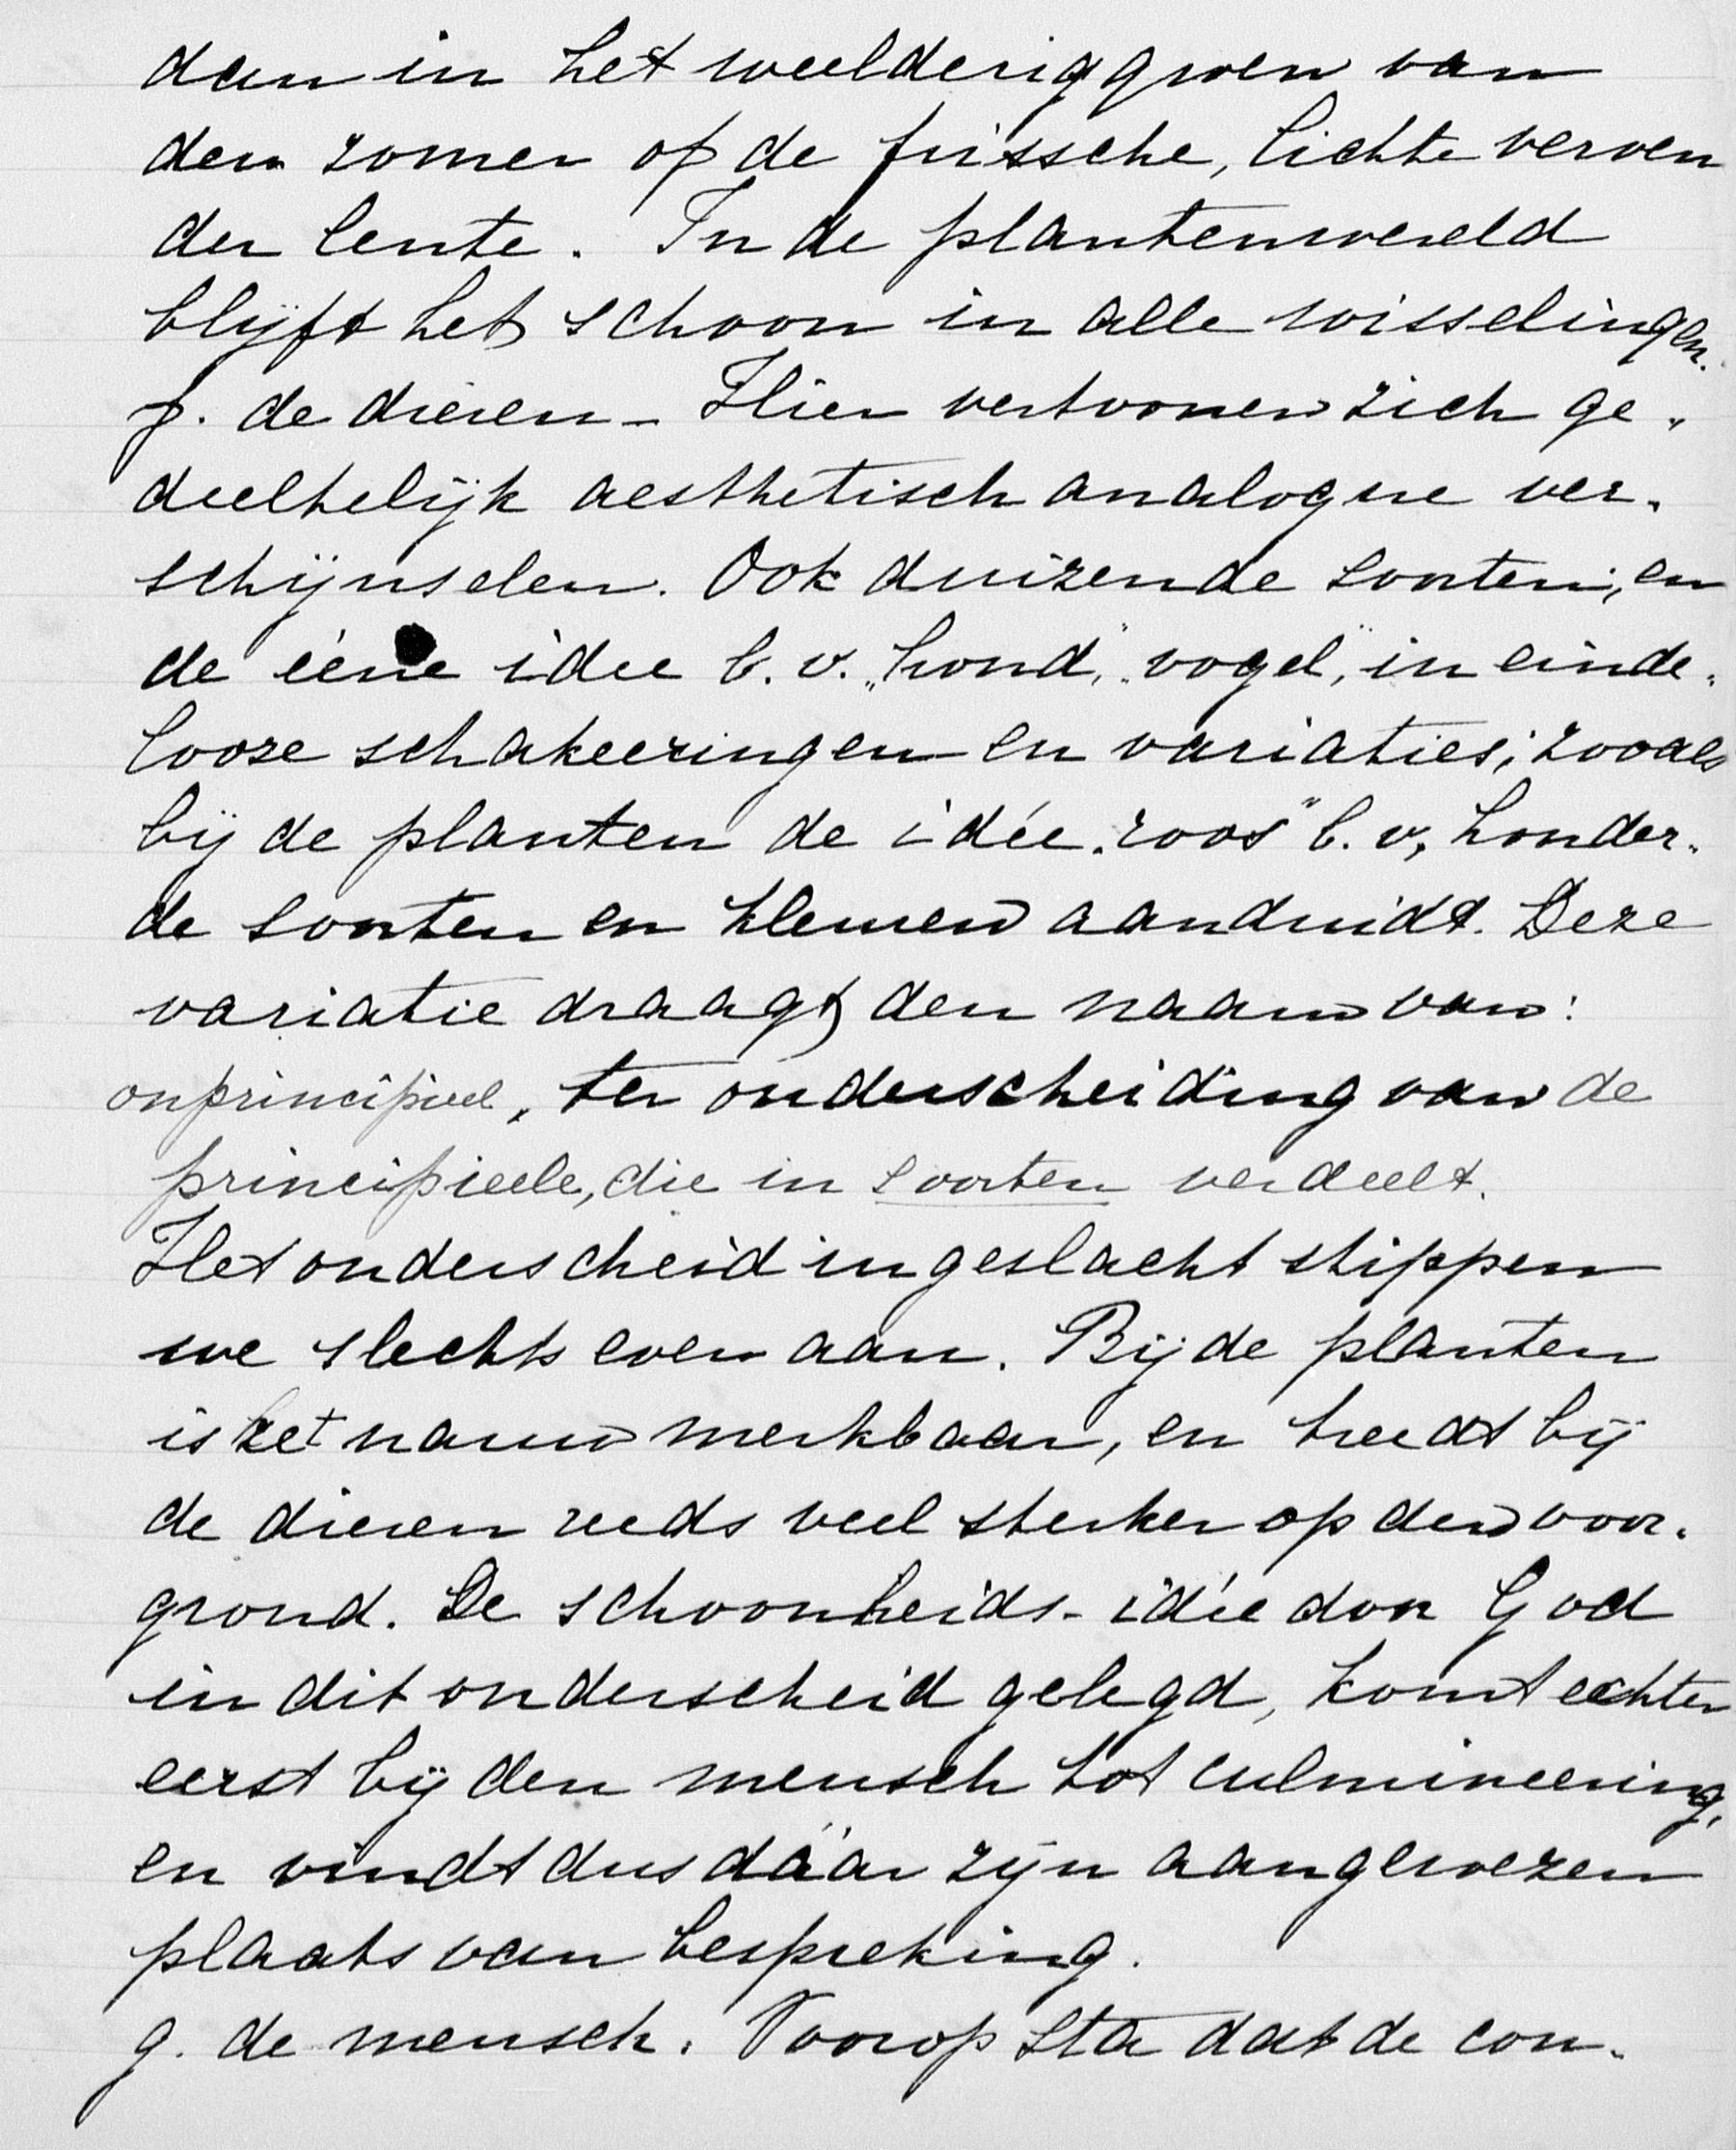 dan in het weelderig groen van
den zomer of de frissche, lichte verven
der lente. In de plantenwereld
blijft het schoon in alle wisselingen.
f. de dieren – Hier vertoonen zich ge-
deeltelijk aesthetisch analogue ver-
schijnselen. Ook duizende soorten, en
de ééne idee b.v. „hond", „vogel", in einde-
looze schakeeringen en variaties; zooals
bij de planten de idée „roos" b.v. honder-
de soorten en kleuren aanduidt. Deze
variatie draagt den naam van:
onprincipieel, ter onderscheiding van de
principieele, die in soorten verdeelt.
Het onderscheid in geslacht stippen
we slechts even aan. Bij de planten
is het nauw merkbaar, en treedt bij
de dieren reeds veel sterker op den voor-
grond. De schoonheids-idée door God
in dit onderscheid gelegd, komt echter
eerst bij den mensch tot culmineering,
en vindt dus dáár zijn aangewezen
plaats van bespreking.
g. de mensch. Voorop sta dat de con-